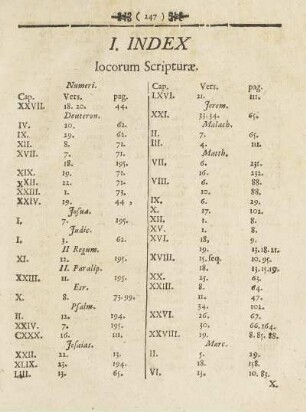 ( 247 )
I. INDEX
locorum Scripturæ.
Numeri.
Cap. Vers. pag.
XXVII. 18. 20. 44.
Deuteron.
IV. 20. 62.
IX. 29. 62.
XII. 8. 71.
XVII. 7. 71.
18. 195.
XIX. 19. 71.
XXII. 22. 71.
XXIII. 1. 73.
XXIV. 19. 44,
Josua.
I. 7. 195.
Judic.
I. 3. 62.
II Regum.
XI. 12. 195.
II. Paralip.
XXIII. 11. 195.
Esr.
X. 8. 73.99.
Psalm.
II. 12. 194.
XXIV. 7. 195.
CXXX. 16. 111.
Jesaias.
XXII. 22. 13.
XLIX. 23. 194.
LIII. 13. 65.
Cap. Vers. pag.
LXVI. 21. 111.
Jerem.
XXI. 33.34. 65.
Malach.
II. 7. 65.
III. 4. 111.
Matth.
VII. 6. 231.
16. 232.
VIII. 6. 88.
10. 88.
IX. 6. 29.
X. 17. 102.
XII. 1. 8.
XV. 1. 8.
XVI. 18. 9.
19. 13.18.21.
XVIII. 15. seq. 10. 95.
18. 13.15.19.
XXII. 21. 8.
XXIII. 8. 64.
2. 57.
34. 102.
XXVI. 26. 67.
30. 66.164.
XXVIII. 19. 8. 85. 88.
Marc.
II. 5. 29.
18. 158.
VI. 13. 10. 85.
X.